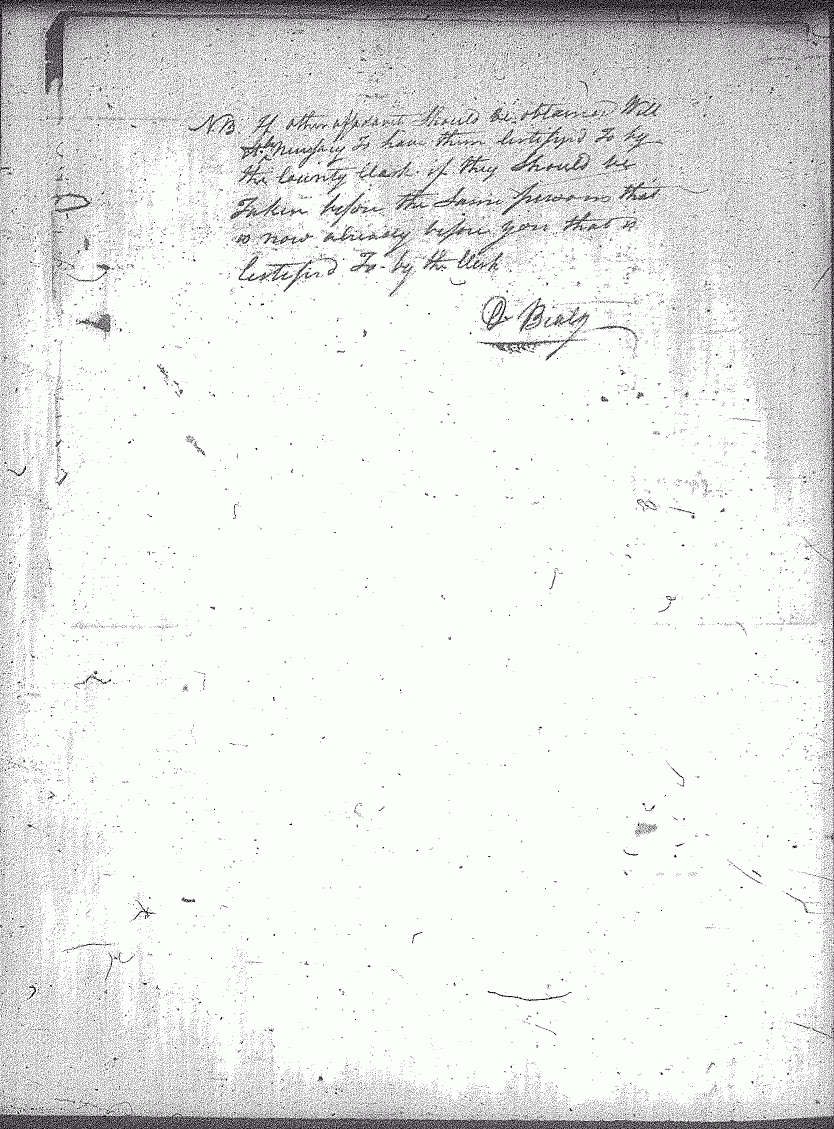 NB. If other affidavit Should be obtained Will
it be necessary To have them Certifyd To by
the County Clerk if they Should be
Taken before the Same persons that
is now already before you that is
Certifyd To by the Clerk